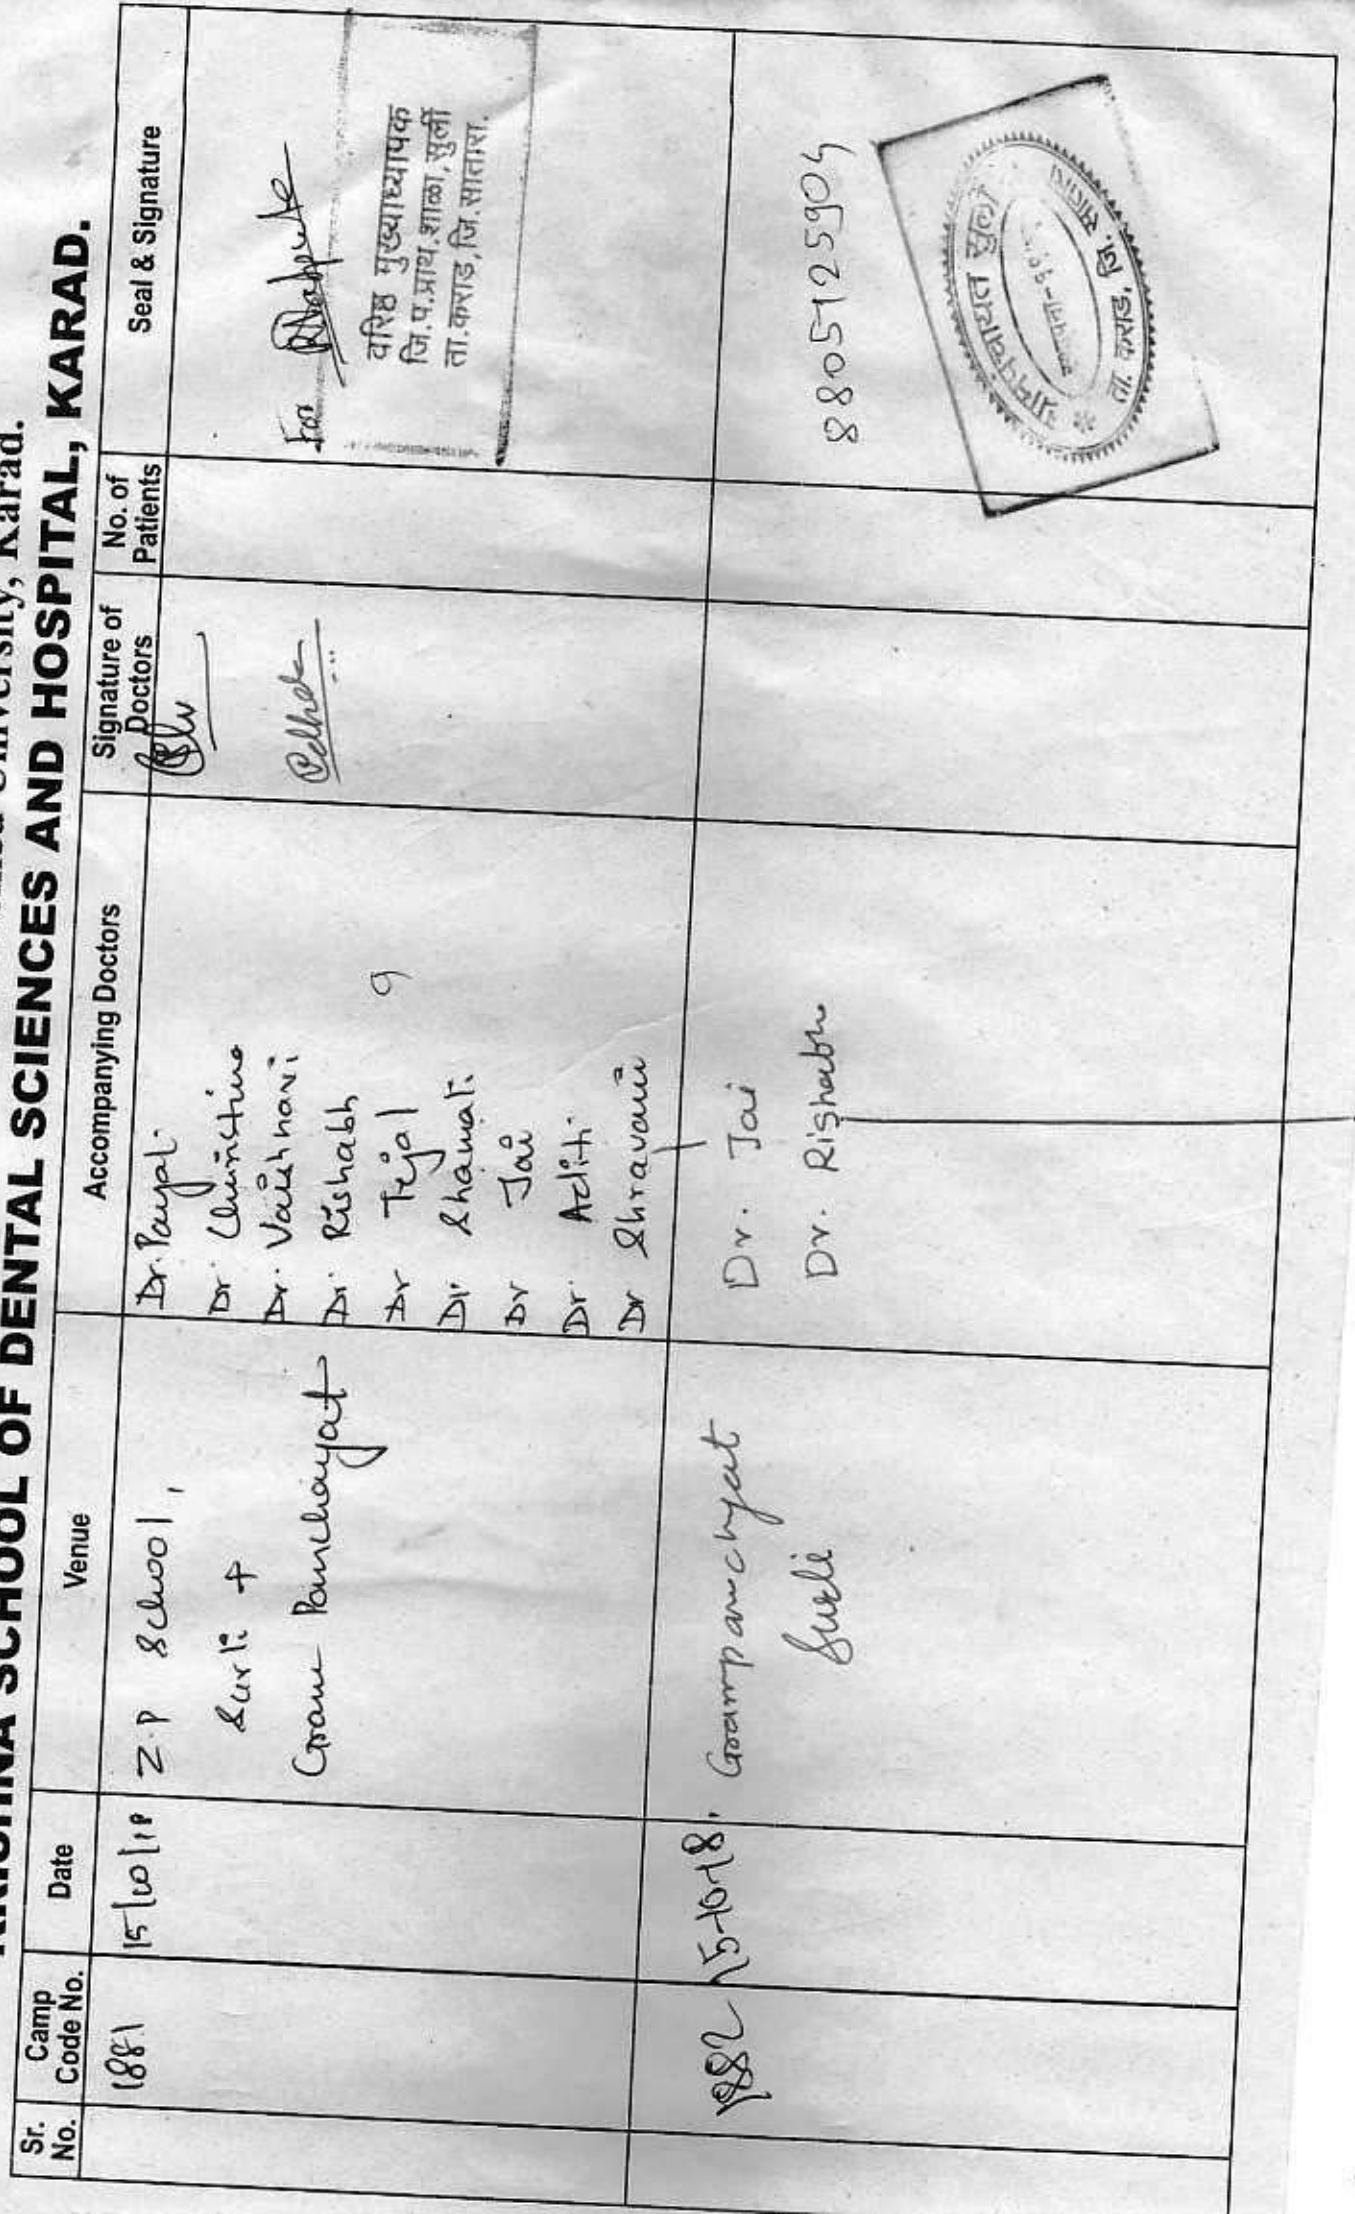 University, Karad.
KRISHNA SCHOOL OF DENTAL SCIENCES AND HOSPITAL, KARAD.
Sr. No. Camp Code No. Date Venue Accompanying Doctors Signature of Doctors No. of Patients Seal & Signature
1881 15/10/18 Z.P School,
Surli +
Gram Panchayat
Dr. Payal.
Dr.
Dr. Vaishnavi
Dr. Rishabh
Dr Tejal
Dr. Shamali
Dr Jai
Dr. Aditi
Dr Shravani
9
For
वरिष्ठ मुख्याध्यापक
जि.प.प्राथ.शाळा, सुर्ली
ता.कराड, जि.सातारा.
1882 15-10-18. Grampanchyat
Surli
Dr. Jai
Dr. Rishabh
8805125904
ग्रामपंचायत सुर्ली
ता. कराड, जि. सातारा